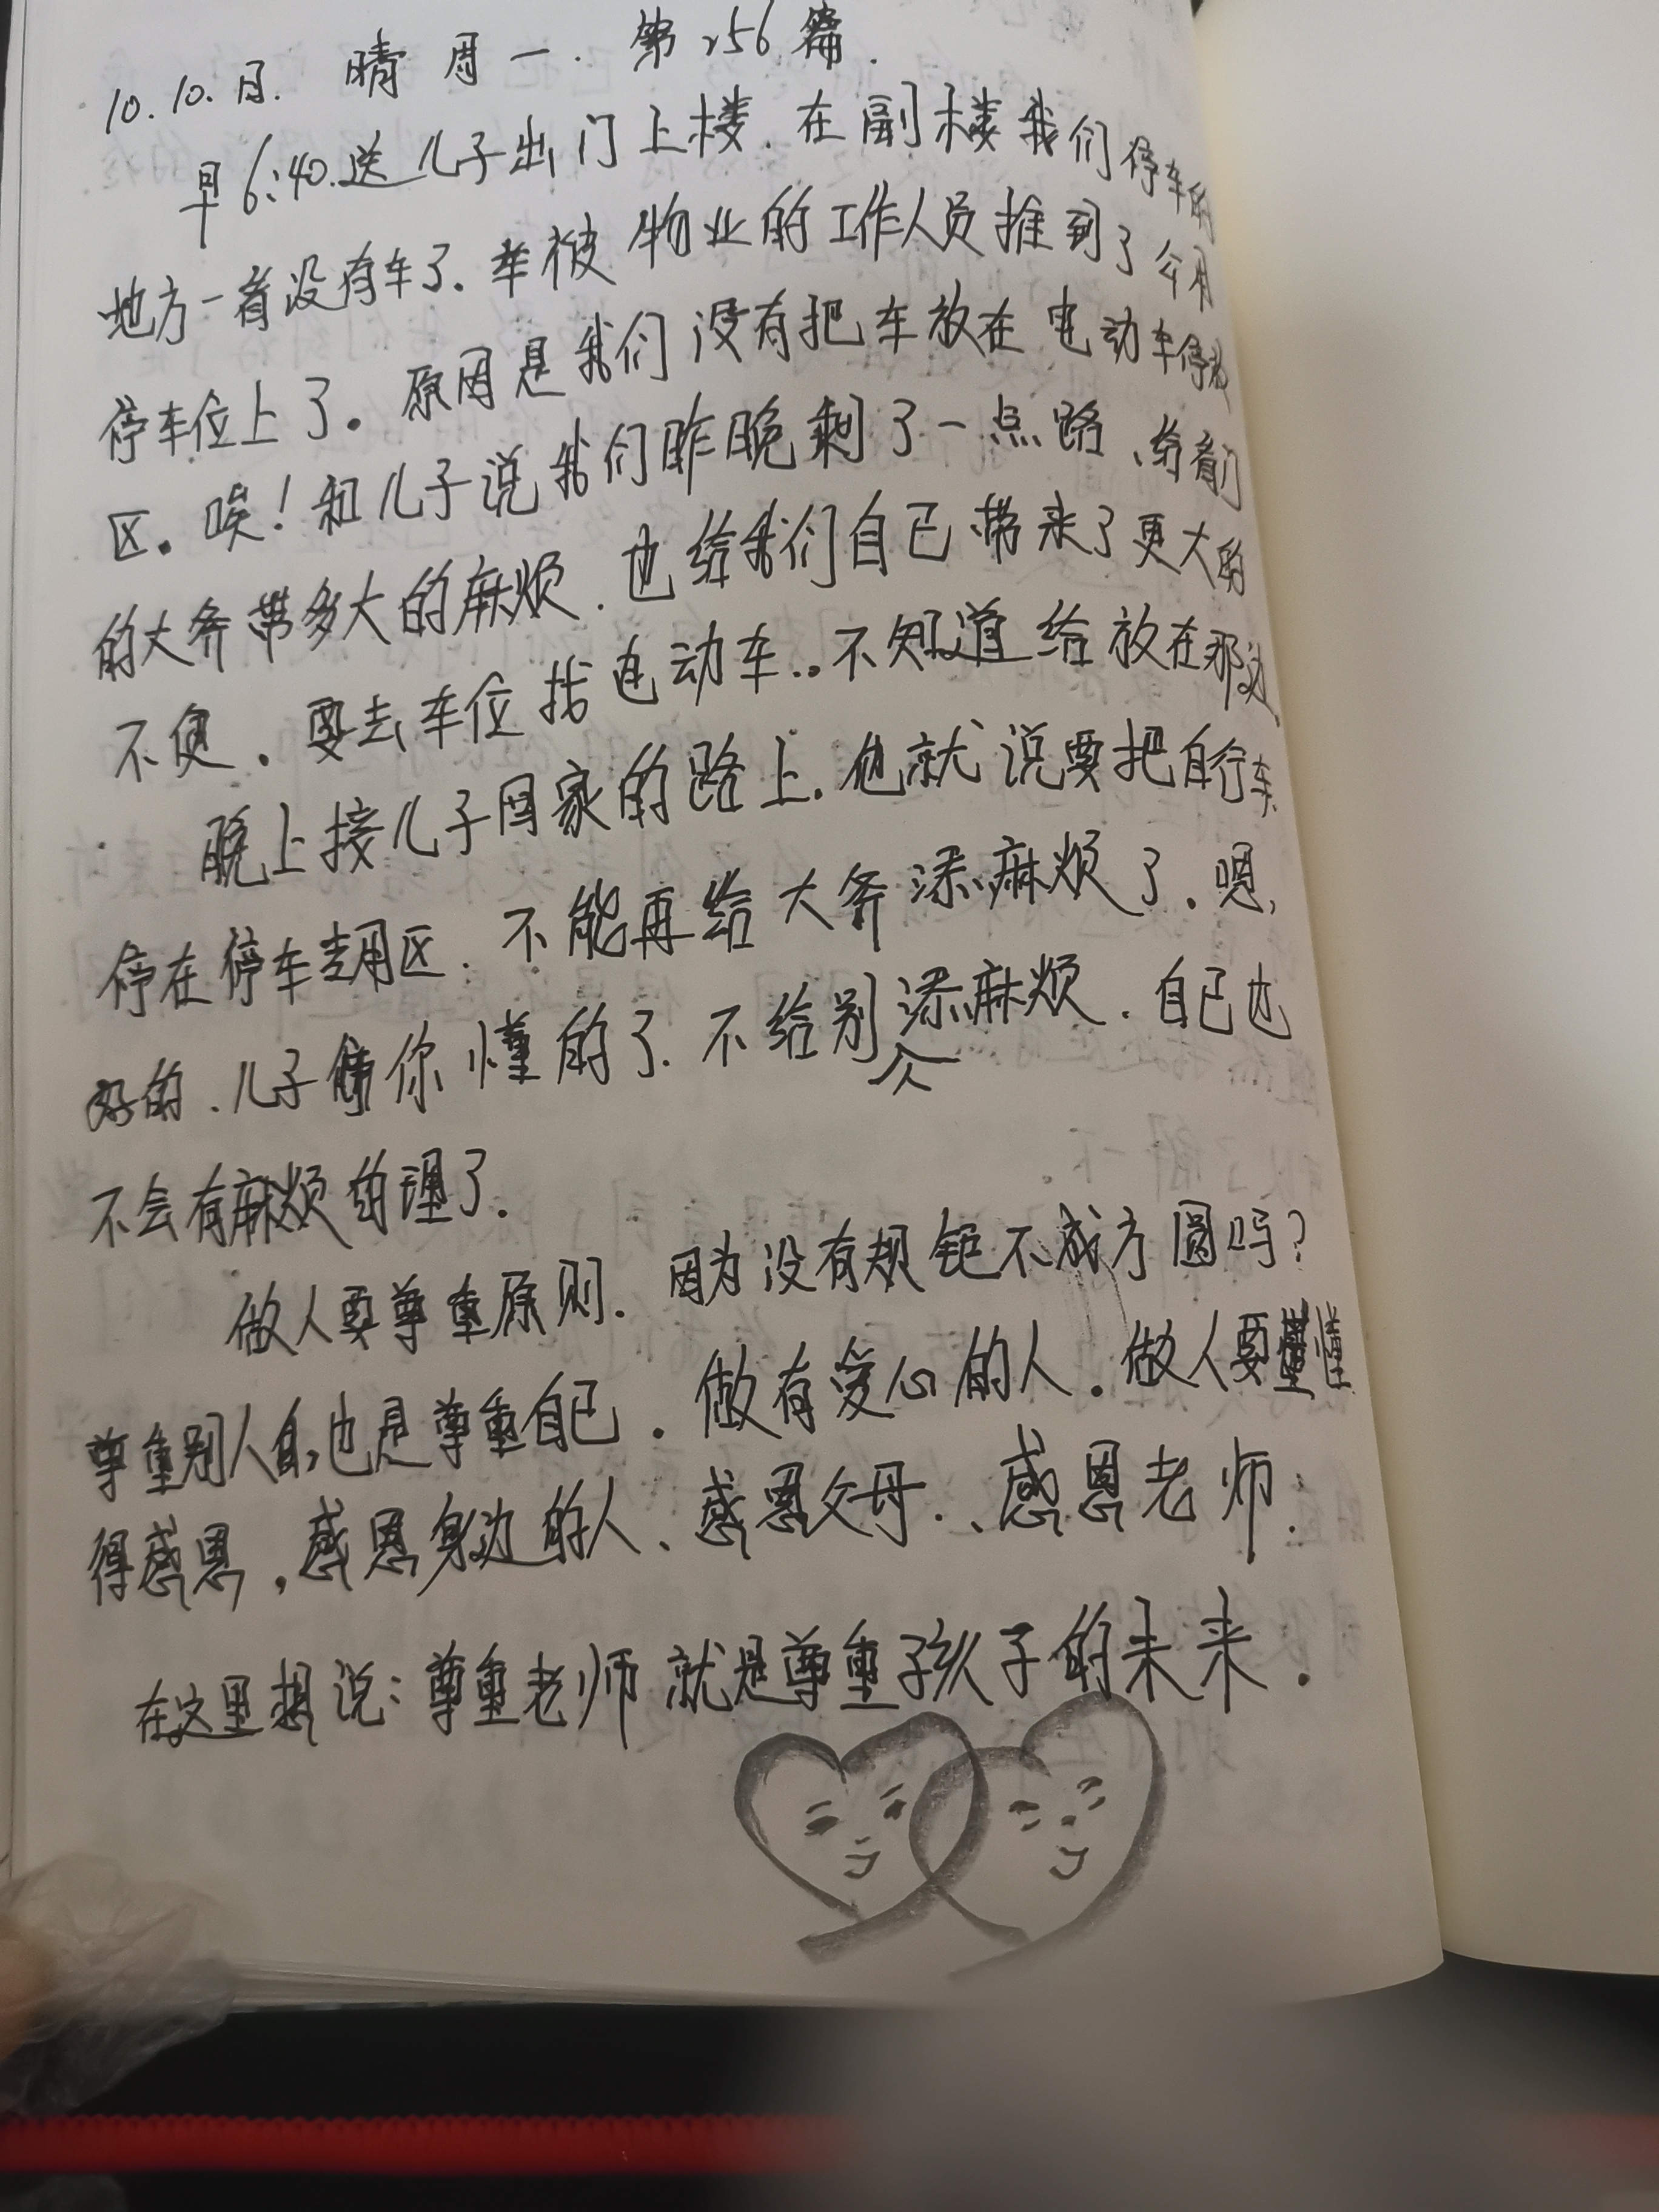 10.10.日. 晴 周一. 第256篇.
早6:40.送儿子出门上楼.在副楼我们停车的
地方一看没有车了.车被物业的工作人员推到了公用
停车位上了。原因是我们没有把车放在电动车停放
区。唉!和儿子说我们昨晚剩了一点路、给看门
的大爷带多大的麻烦.也给我们自己带来了更大的
不便.要去车位找电动车..不知道给放在那边.
晚上接儿子回家的路上.他就说要把自行车
停在停车专用区.不能再给大爷添麻烦了.嗯,
好的.儿子你懂的了.不给别人添麻烦.自己也
不会有麻烦的理了.
做人要尊重原则.因为没有规钜不成方圆吗?
尊重别人也是尊重自己.做有爱心的人.做人要懂
得感恩.感恩身边的人、感恩父母.、感恩老师.
在这里想说:尊重老师就是尊重孩子的未来.